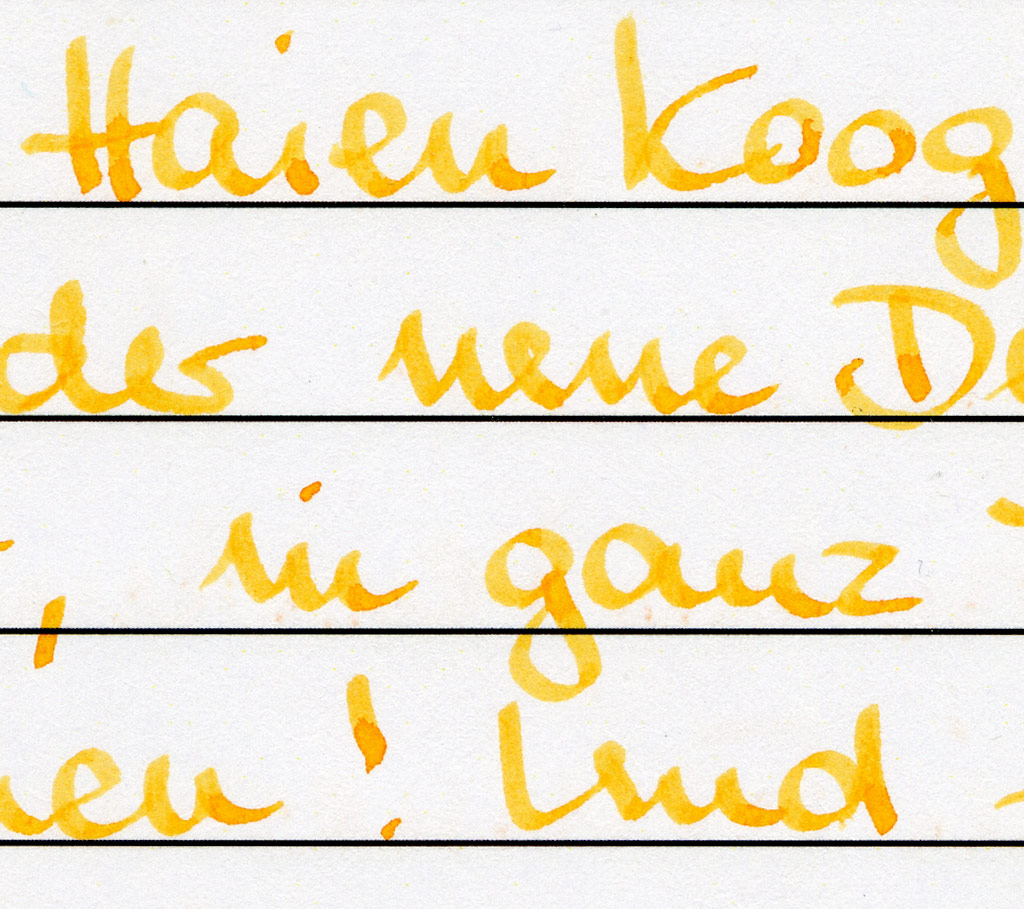 Haien Koog
der neue De
, in ganz
nen ! Und